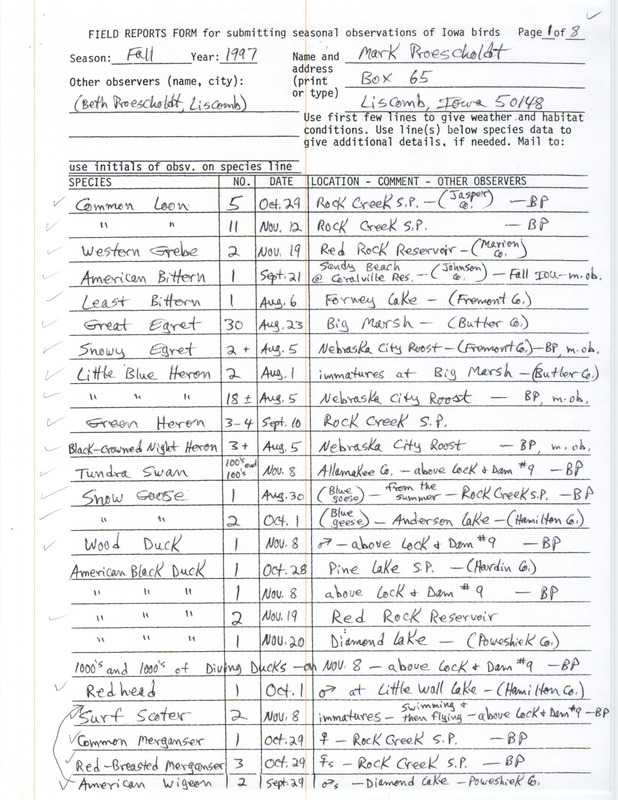 FIELD REPORTS FORM for submitting seasonal observations of Iowa birds Page 1 of 8
Season: Fall Year: 1997 Name and address (print or type) Mark Proescholdt
Box 65
Liscomb, Iowa 50148
Other observers (name, city):
(Beth Proescholdt, Liscomb)
Use first few lines to give weather and habitat
conditions. Use line(s) below species data to
give additional details, if needed. Mail to:
use initials of obsv. on species line
SPECIES NO. DATE LOCATION - COMMENT - OTHER OBSERVERS
Common Loon 5 Oct. 29 Rock Creek S.P. - (Jasper Co.) - BP
" " 11 Nov. 12 Rock Creek S.P. - BP
Western Grebe 2 Nov. 19 Red Rock Reservoir - (Marion Co.)
American Bittern 1 Sept. 21 Sandy Beach @ Coralville Res. - (Johnson Co.) - Fall IOU - m.ob.
Least Bittern 1 Aug. 6 Forney Lake - (Fremont Co.)
Great Egret 30 Aug. 23 Big Marsh - (Butler Co.)
Snowy Egret 2+ Aug. 5 Nebraska City Roost - (Fremont Co.) - BP, m.ob.
Little Blue Heron 2 Aug. 1 immatures at Big Marsh - (Butler Co.)
" " " 18± Aug. 5 Nebraska City Roost - BP, m.ob.
Green Heron 3-4 Sept. 10 Rock Creek S.P.
Black-Crowned Night Heron 3+ Aug. 5 Nebraska City Roost - BP, m.ob.
Tundra Swan 100's and 100's Nov. 8 Allamakee Co. - above Lock & Dam #9 - BP
Snow Goose 1 Aug. 30 (Blue geese) - from the summer - Rock Creek S.P. - BP
" " 2 Oct. 1 (Blue geese) - Anderson Lake - (Hamilton Co.)
Wood Duck 1 Nov. 8 ♂ - above Lock & Dam #9 - BP
American Black Duck 1 Oct. 28 Pine Lake S.P. - (Hardin Co.)
" " " 1 Nov. 8 above Lock & Dam #9 - BP
" " " 2 Nov. 19 Red Rock Reservoir
" " " 1 Nov. 20 Diamond Lake - (Poweshiek Co.)
1000's and 1000's of Diving Ducks - on Nov. 8 - above Lock & Dam #9 - BP
Redhead 1 Oct. 1 ♂ at Little Wall Lake - (Hamilton Co.)
Surf Scoter 2 Nov. 8 immatures - swimming & then flying - above Lock & Dam #9 - BP
Common Merganser 1 Oct. 29 ♀ - Rock Creek S.P. - BP
Red-Breasted Merganser 3 Oct. 29 ♀s - Rock Creek S.P. - BP
American Wigeon 2 Sept. 29 ♂s - Diamond Lake - Poweshiek Co.